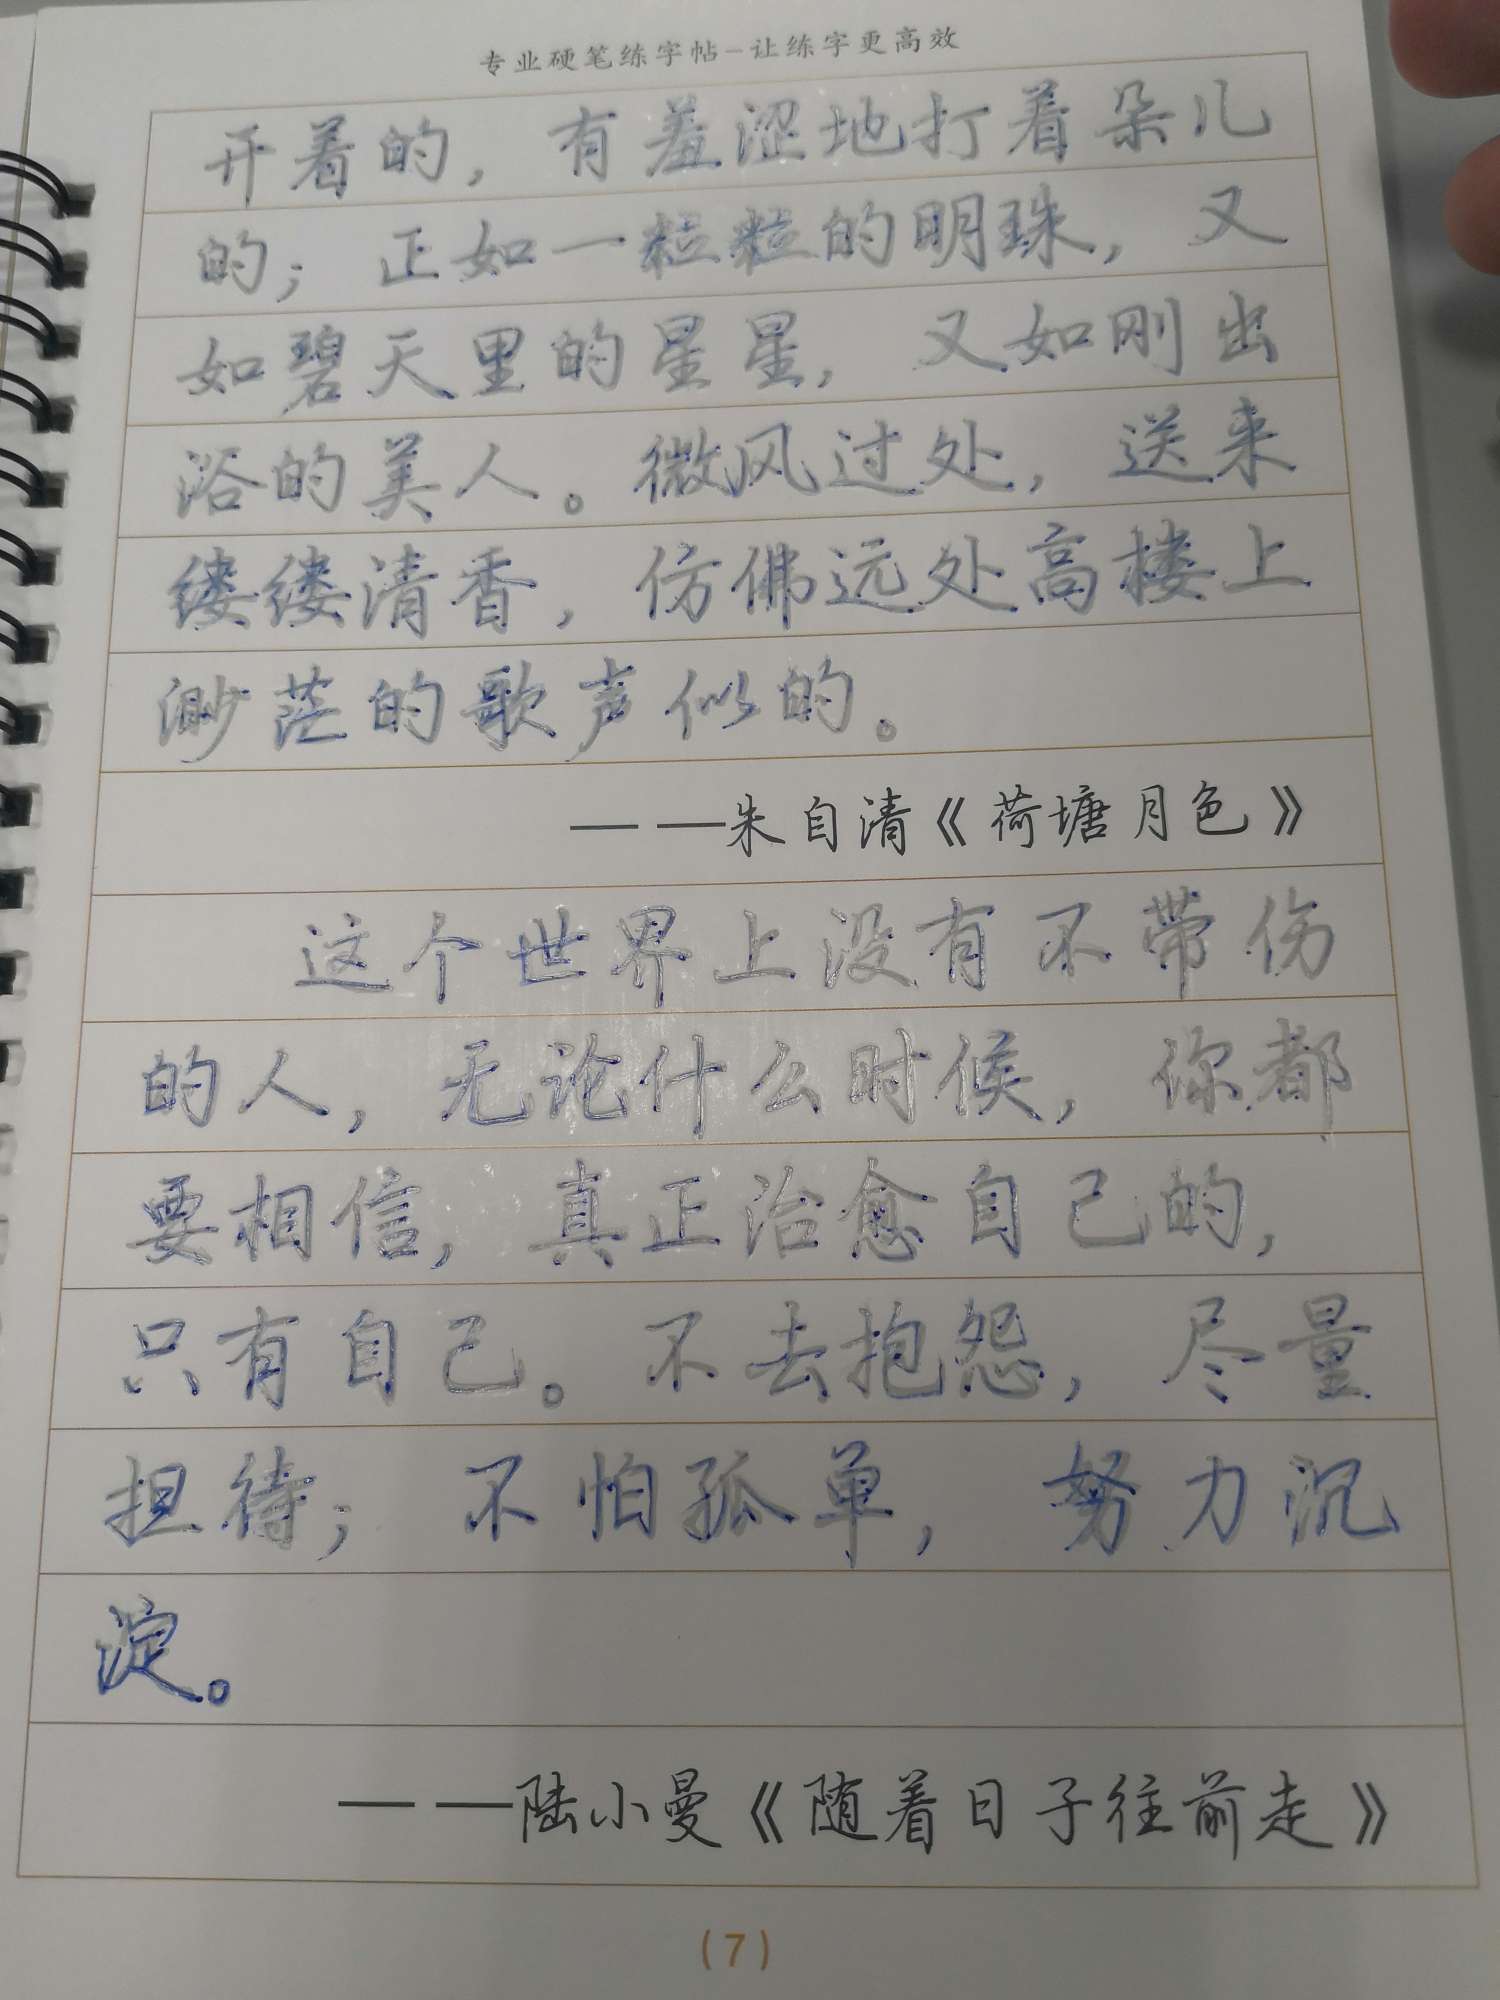 专业硬笔练字帖-让练字更高效
开着的，有羞涩地打着朵儿
的；正如一粒粒的明珠，又
如碧天里的星星，又如刚出
浴的美人。微风过处，送来
缕缕清香，仿佛远处高楼上
渺茫的歌声似的。
——朱自清《荷塘月色》
这个世界上没有不带伤
的人，无论什么时候，你都
要相信，真正治愈自己的，
只有自己。不去抱怨，尽量
担待；不怕孤单，努力沉
淀。
——陆小曼《随着日子往前走》
(7)